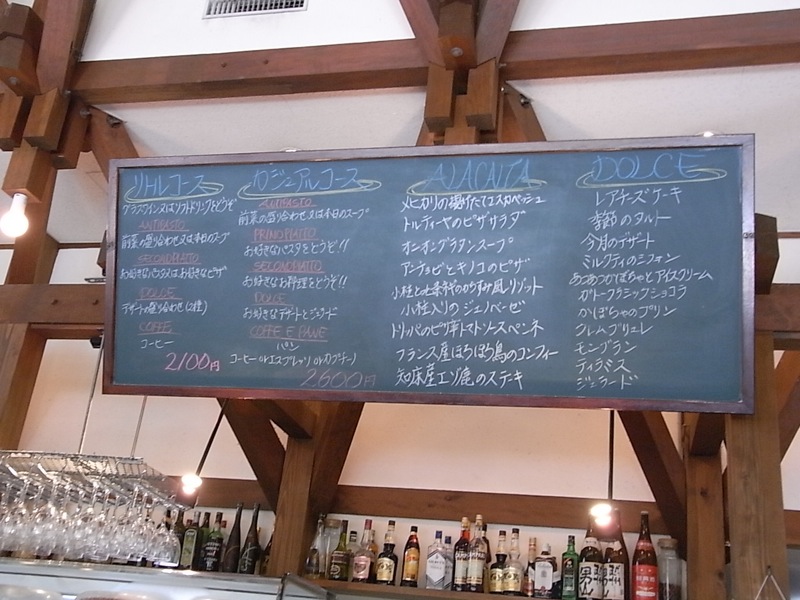 リトルコース
グラスワイン又はソフトドリンクをどうぞ
ANTIPASTO
前菜の盛り合わせ又は本日のスープ
SECONDPIATTO
お好きなパスタ又はお好きなピザ
DOLCE
デザートの盛り合わせ(2種)
COFFE
コーヒー
2100円
カジュアルコース
ANTIPASTO
前菜の盛り合わせ又は本日のスープ
PRIMOPIATTO
お好きなパスタをどうぞ!!
SECONDPIATTO
お好きなお料理をどうぞ!!
DOLCE
お好きなデザートとジェラード
COFFE E PANE
パン
コーヒー orエスプレッソ orカプチーノ
2600円
ALACALTA
メヒカリの揚げたてエスカベッシュ
トルティーヤのピザサラダ
オニオングランスープ
アンチョビとキノコのピザ
小柱と水菜のからすみ風リゾット
小柱入りのジェノベーゼ
トリッパのピリ辛トマトソースペンネ
フランス産ほろほろ鳥のコンフィー
知床産エゾ鹿のステキ
DOLCE
レアチーズケーキ
季節のタルト
今月のデザート
ミルクティのシフォン
あつあつかぼちゃとアイスクリーム
ガトークラシックショコラ
かぼちゃのプリン
クレムブリュレ
モンブラン
ティラミス
ジェラード